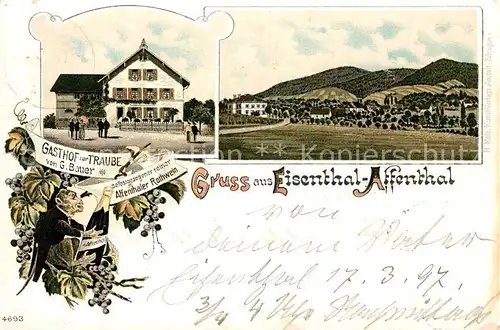 GASTHOF zur TRAUBE
von G. Bauer
selbstgezogener reiner
Affenthaler Rothwein
Gruss aus Eisenthal-Affenthal
von
deinem Vater
Eisenthal 17.3.97.
3/4 4 Uhr Nachmittag
4693